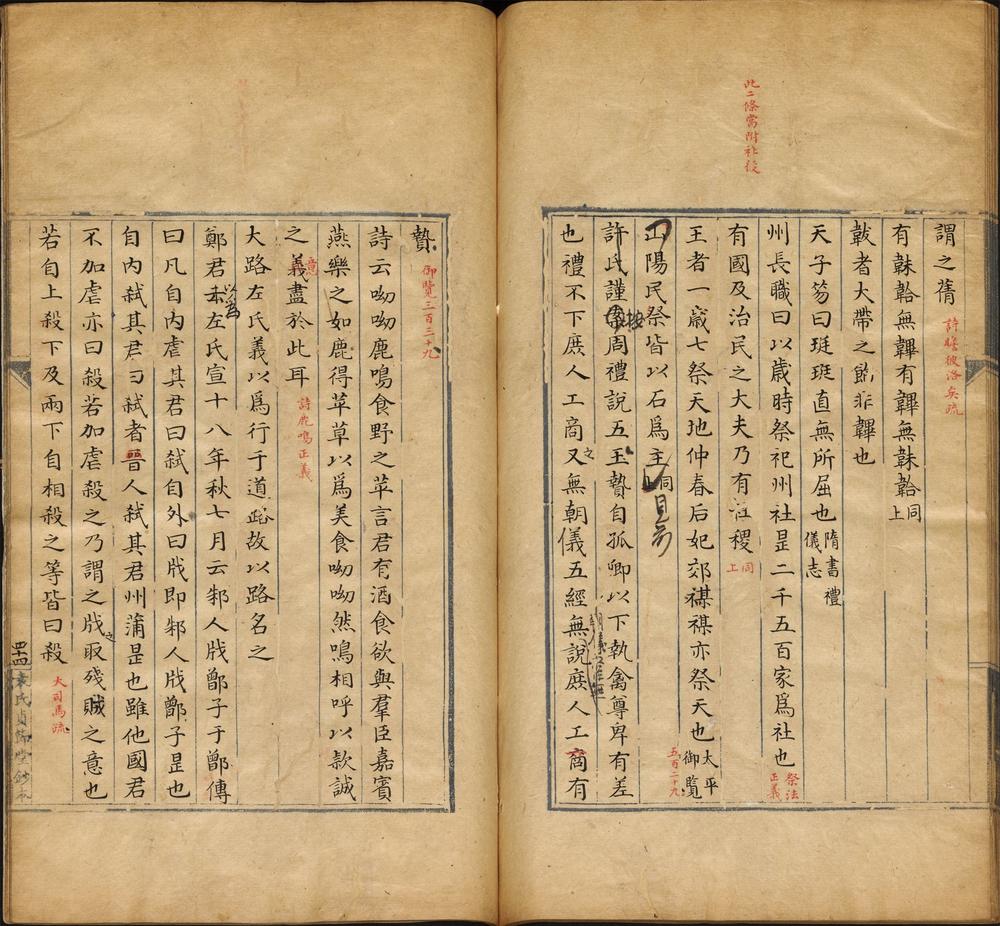 此二條當附社後
謂之蒨 詩瞻彼洛矣疏
有韎韐無韠有韠無韎韐 同上
韍者大帶之飾非韠也
天子笏曰珽珽直無所屈也 隋書禮儀志
州長職曰以歲時祭祀州社是二千五百家爲社也 祭法正義
有國及治民之大夫乃有社稷 同上
王者一歲七祭天地仲春后妃郊禖禖亦祭天也 太平御覽 五百二十九
山陽民祭皆以石爲主 同上 見前
許氏謹按周禮說五玉贄自孤卿以下執禽尊卑有差
也禮不下庶人工商又無朝儀五經無說庶人工商有
贄 御覽三百三十九
詩云呦呦鹿鳴食野之苹言君有酒食欲與羣臣嘉賓
燕樂之如鹿得苹草以爲美食呦呦然鳴相呼以款誠
之義意盡於此耳 詩鹿鳴正義
大路左氏義以爲行于道路故以路名之
鄭君以爲左氏宣十八年秋七月云邾人戕鄫子于鄫傳
曰凡自內虐其君曰弒自外曰戕即邾人戕鄫子是也
自內弒其君曰弒者晉人弒其君州蒲是也雖他國君
不加虐亦曰殺若加虐殺之乃謂之戕之取殘賊之意也
若自上殺下及兩下自相殺之等皆曰殺 大司馬疏
四十四 袁氏貞節堂鈔本